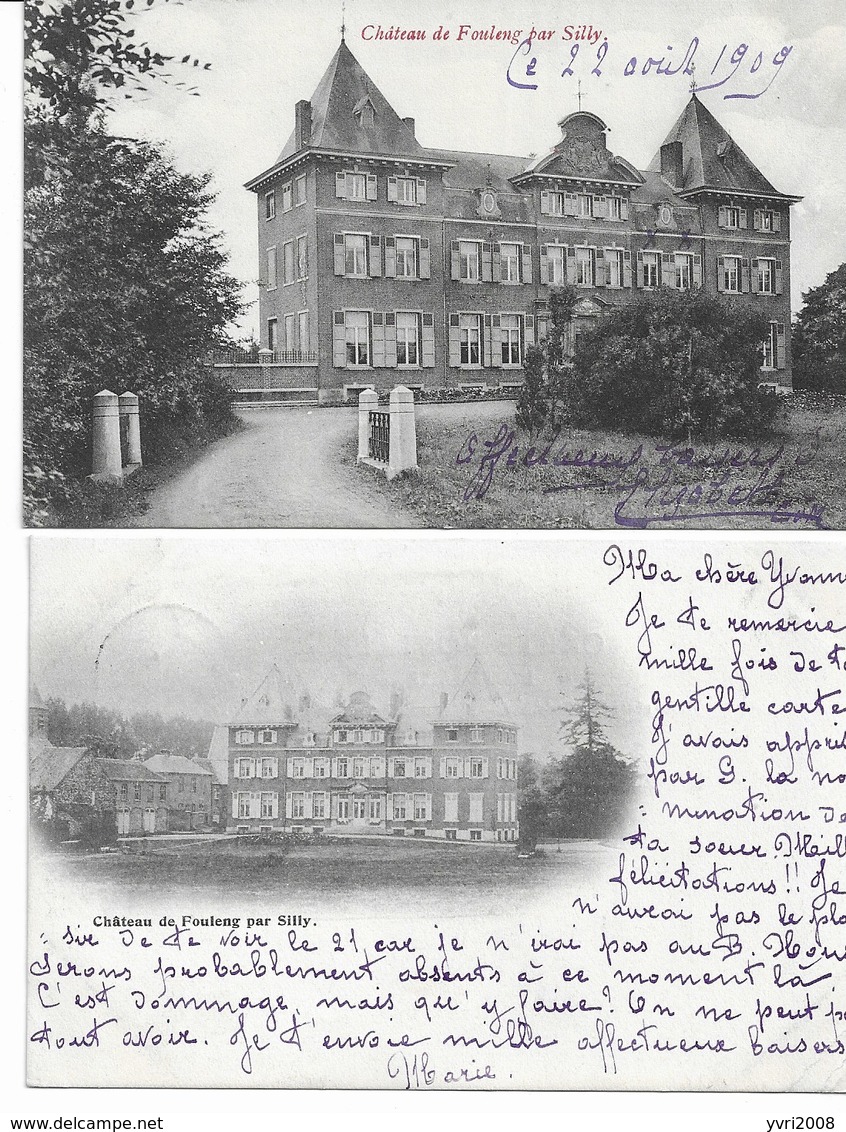 Château de Fouleng par Silly.
Ce 22 août 1909
Affectueux baisers
Elisabeth
Ma chère Yvonn
Je te remercie
mille fois de t
gentille carte
J'avais appris
par G. la no
= mination de
ta soeur. Meill
félicitations!! Je
n'aurai pas le pla
Château de Fouleng par Silly.
= sir de te voir le 21, car je n'irai pas au B. Nous
serons probablement absents à ce moment là.
C'est dommage, mais qu'y faire? On ne peut p
tout avoir. Je t'envoie mille affectueux baisers
Marie.
www.delcampe.net
yvri2008